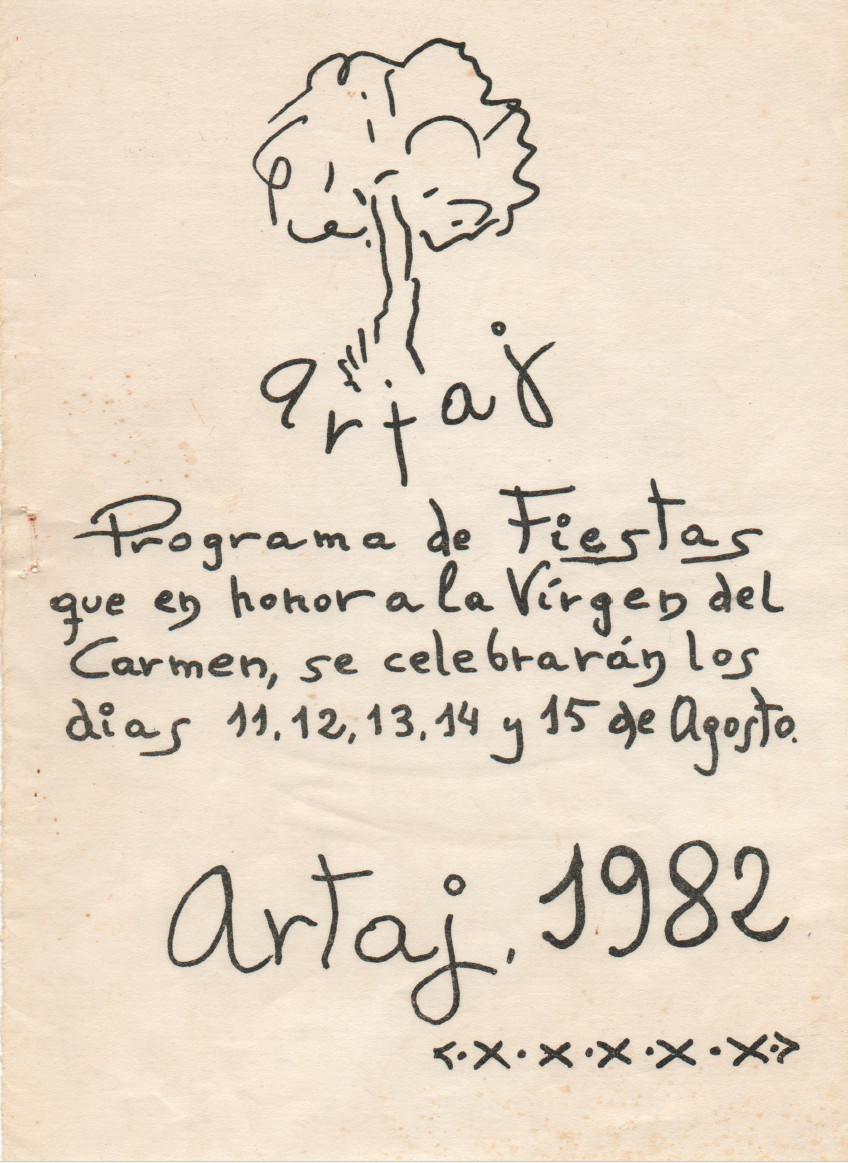 artaj
Programa de Fiestas
que en honor a la Vírgen del
Carmen, se celebrarán los
dias 11, 12, 13, 14 y 15 de Agosto.
Artaj, 1982
<·x·x·x·x·x·>